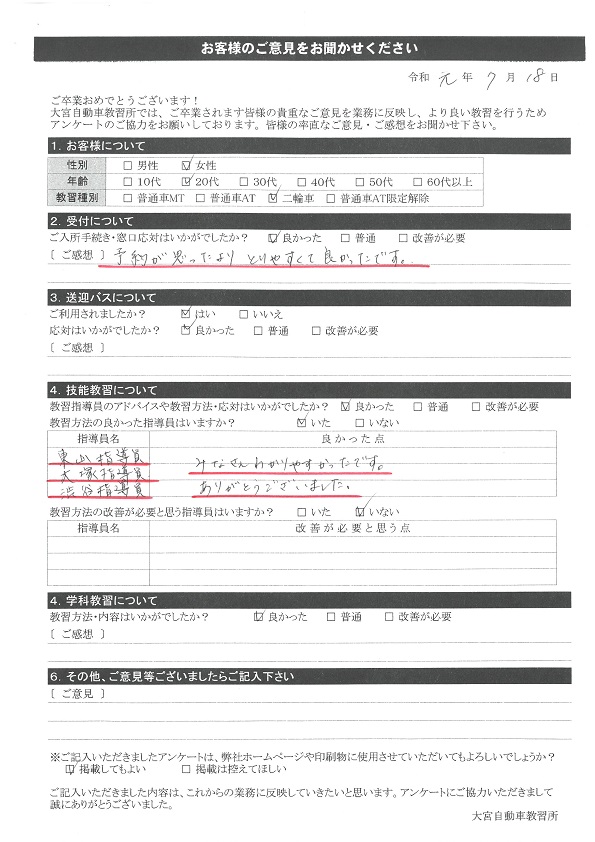 お客様のご意見をお聞かせください
令和 元 年 7 月 18 日
ご卒業おめでとうございます！
大宮自動車教習所では、ご卒業されます皆様の貴重なご意見を業務に反映し、より良い教習を行うため
アンケートのご協力をお願いしております。皆様の率直なご意見・ご感想をお聞かせ下さい。
1. お客様について
性別 □男性 ☑女性
年齢 □10代 ☑20代 □30代 □40代 □50代 □60代以上
教習種別 □普通車MT □普通車AT ☑二輪車 □普通車AT限定解除
2. 受付について
ご入所手続き・窓口応対はいかがでしたか？ ☑良かった □普通 □改善が必要
［ご感想］予約が思ったより とりやすくて良かったです。
3. 送迎バスについて
ご利用されましたか？ ☑はい □いいえ
応対はいかがでしたか？ ☑良かった □普通 □改善が必要
［ご感想］
4. 技能教習について
教習指導員のアドバイスや教習方法・応対はいかがでしたか？ ☑良かった □普通 □改善が必要
教習方法の良かった指導員はいますか？ ☑いた □いない
指導員名 良かった点
東山指導員 みなさんわかりやすかったです。
大塚指導員
渋谷指導員 ありがとうございました。
教習方法の改善が必要と思う指導員はいますか？ □いた ☑いない
指導員名 改善が必要と思う点
4. 学科教習について
教習方法・内容はいかがでしたか？ ☑良かった □普通 □改善が必要
［ご感想］
6. その他、ご意見等ございましたらご記入下さい
［ご意見］
※ご記入いただきましたアンケートは、弊社ホームページや印刷物に使用させていただいてもよろしいでしょうか？
☑掲載してもよい □掲載は控えてほしい
ご記入いただきました内容は、これからの業務に反映していきたいと思います。アンケートにご協力いただきまして
誠にありがとうございました。
大宮自動車教習所